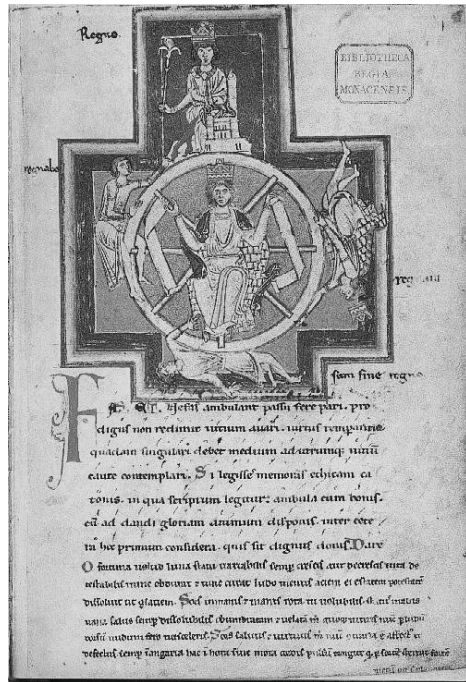 Regno.
BIBLIOTHECA
REGIA
MONACENSIS.
regnabo
regnaui
sum sine regno
Fas et nefas ambulant passu fere pari. pro
digus non redimit uitium auari. uirtus temperantia
quadam singulari debet medium ad utrumq; uitiũ
caute contemplari. Si legisse memoras ethicam ca
tonis. in qua scriptum legitur ambula cum bonis.
cũ ad dandi gloriam animum disponis. inter cete
ra hoc primum considera. quis sit dignus donis.
O fortuna uelud luna statu uariabilis semp crescis aut decrescis uita de
testabilis nunc obdurat & tunc curat ludo mentis aciem egestatem potestatẽ
dissoluit ut glaciem. Sors inmanis & inanis rota tu uolubilis status malus
uana salus semp dissolubilis obumbratam & uelatã m quoq; niteris nũc p ludũ
dorsũ nudum fero tui sceleris. Sors salutis & uirtutis m nũc contraria ẽ affect &
defectus semp ĩ angaria hac ĩ hora sine mora